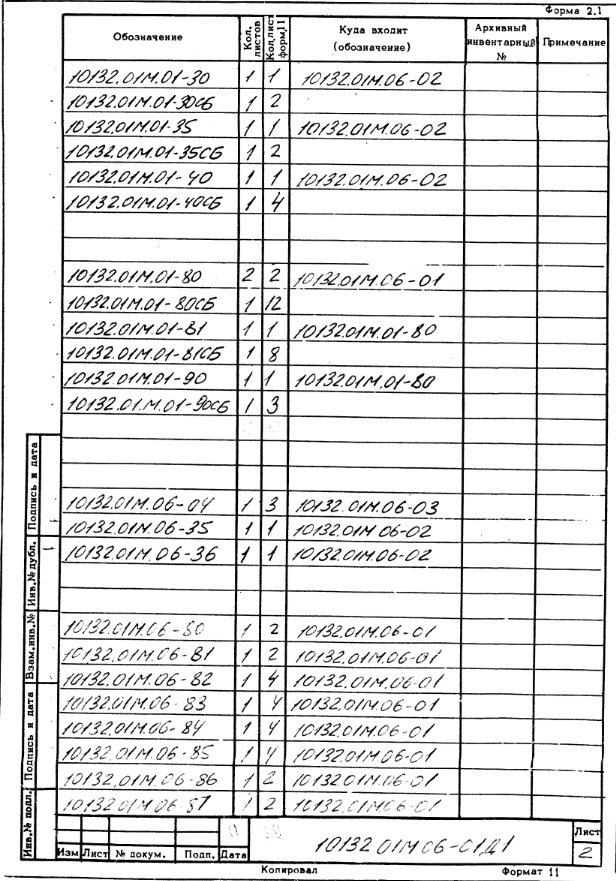 Форма 2.1
Обозначение Кол. листов Кол. лист форм. 11 Куда входит (обозначение) Архивный инвентарный № Примечание
10132.01М.01-30 1 1 10132.01М.06-02
10132.01М.01-30СБ 1 2
10132.01М.01-35 1 1 10132.01М.06-02
10132.01М.01-35СБ 1 2
10132.01М.01-40 1 1 10132.01М.06-02
10132.01М.01-40СБ 1 4
10132.01М.01-80 2 2 10132.01М.06-01
10132.01М.01-80СБ 1 12
10132.01М.01-81 1 1 10132.01М.01-80
10132.01М.01-81СБ 1 8
10132.01М.01-90 1 1 10132.01М.01-80
10132.01.М.01-90СБ 1 3
10132.01М.06-04 1 3 10132.01М.06-03
10132.01М.06-35 1 1 10132.01М 06-02
10132.01М.06-36 1 1 10132.01М.06-02
10132.01М.06-80 1 2 10132.01М.06-01
10132.01М.06-81 1 2 10132.01М.06-01
10132.01М.06-82 1 4 10132.01М.06-01
10132.01М.06-83 1 4 10132.01М.06-01
10132.01М.06-84 1 4 10132.01М.06-01
10132.01М.06-85 1 4 10132.01М.06-01
10132.01М.06-86 1 2 10132.01М.06-01
10132.01М.06-87 1 2 10132.01М.06-01
Инв.№ подл. Подпись и дата Взам.инв.№ Инв.№ дубл. Подпись и дата
Изм Лист № докум. Подп. Дата
10132.01М 06-01Д1
Лист
2
Копировал Формат 11